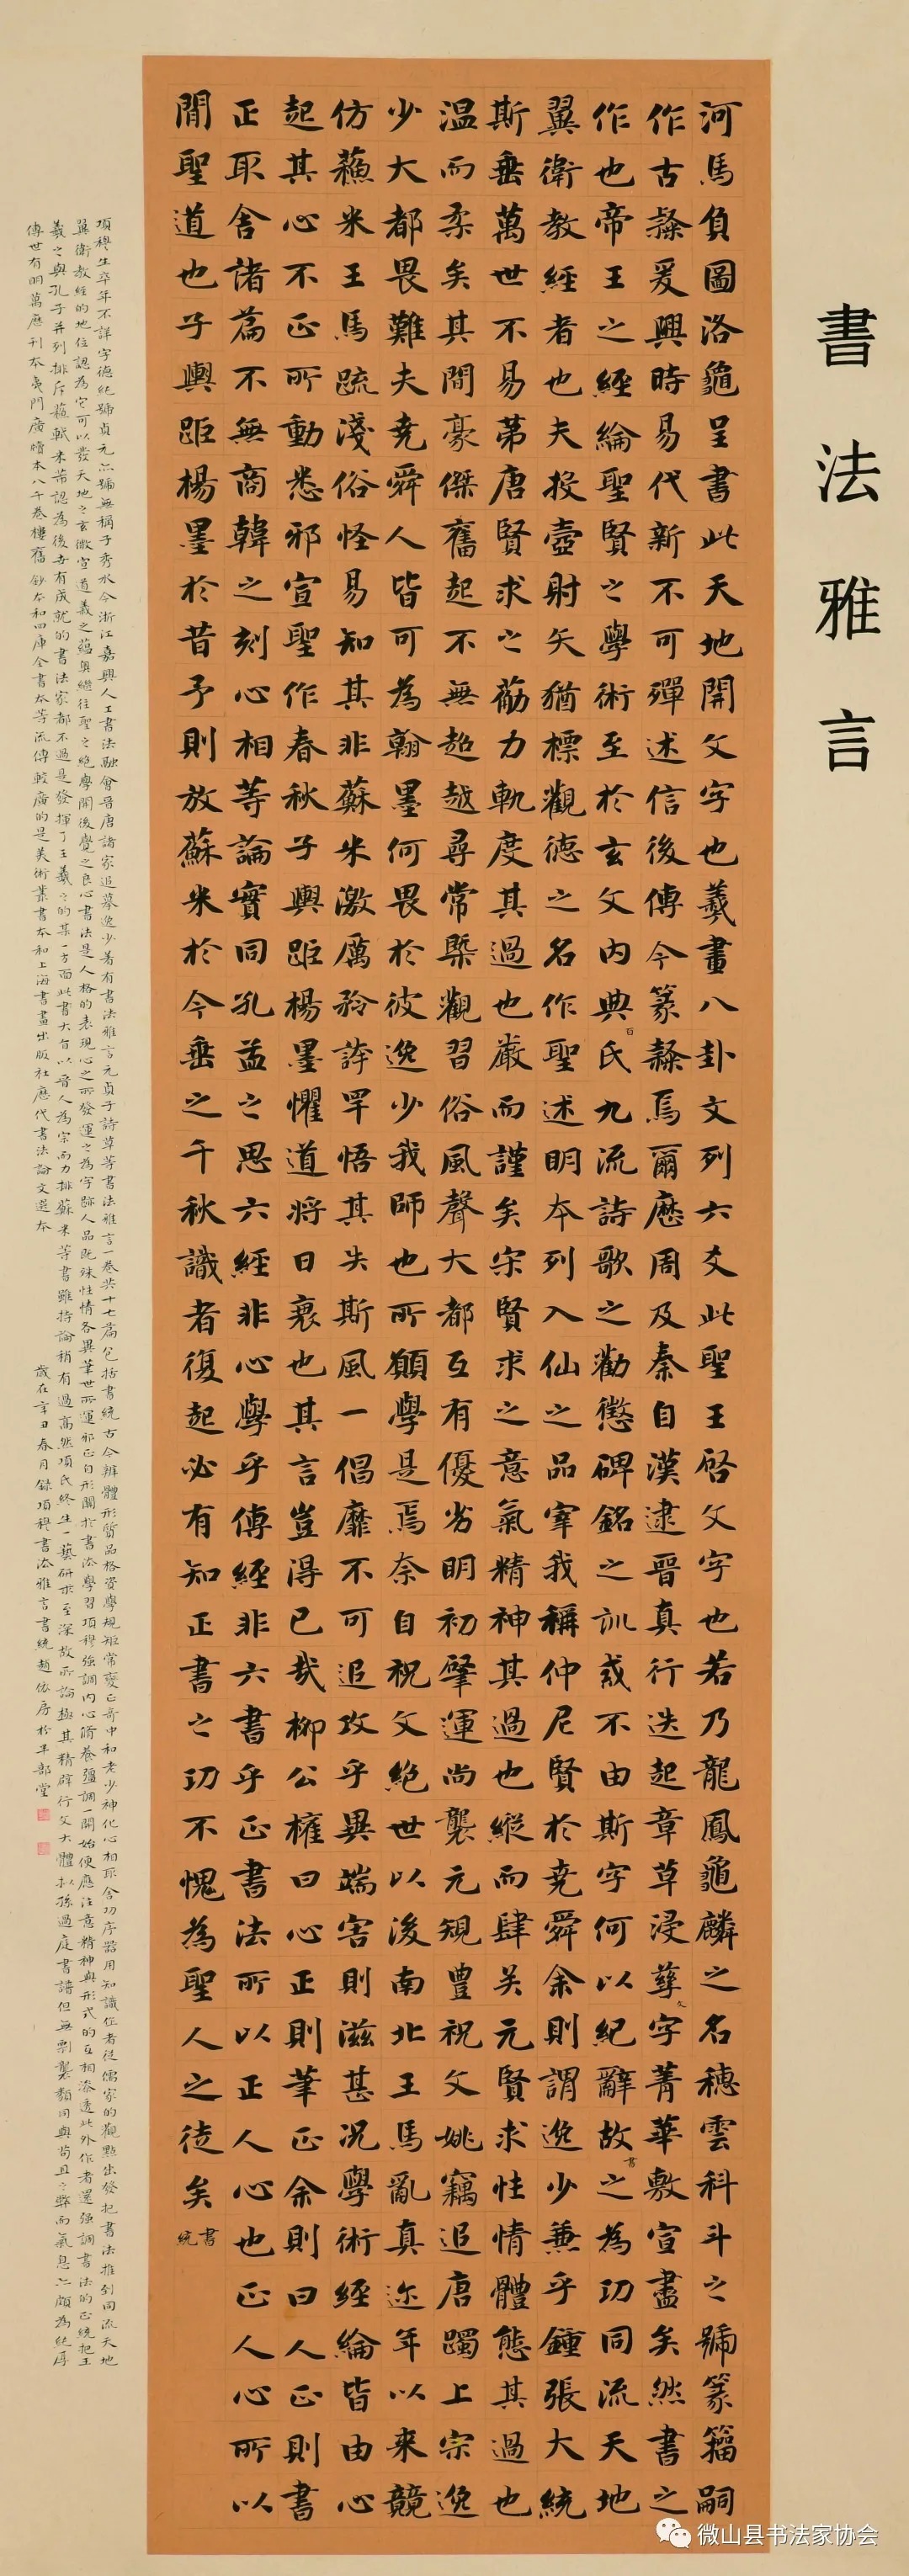 書法雅言
河馬負圖洛龜呈書此天地開文字也羲畫八卦文列六爻此聖王啓文字也若乃龍鳳龜麟之名穗雲科斗之號篆籀嗣
作古隸爰興時易代新不可殫述信後傳今篆隸焉爾歷周及秦自漢逮晉真行迭起章草浸孳文字菁華敷宣盡矣然書之
作也帝王之經綸聖賢之學術至於玄文內典百氏九流詩歌之勸懲碑銘之訓戒不由斯字何以紀辭故書之為功同流天地
翼衛教經者也夫投壺射矢猶標觀德之名作聖述明本列入仙之品宰我稱仲尼賢於堯舜余則謂逸少兼乎鍾張大統
斯垂萬世不易第唐賢求之勸力軌度其過也嚴而謹矣宋賢求之意氣精神其過也縱而肆矣元賢求性情體態其過也
温而柔矣其間豪傑奮起不無超越尋常槩觀習俗風聲大都互有優劣明初肇運尚襲元規豊祝文姚竊追唐躅上宗逸
少大都畏難夫堯舜人皆可為翰墨何畏於彼逸少我師也所願學是焉奈自祝文絕世以後南北王馬亂真迩年以来競
仿蘓米王馬疏淺俗怪易知其非蘇米激厲矜誇罕悟其失斯風一倡靡不可追攻乎異端害則滋甚况學術經綸皆由心
起其心不正所動悉邪宣聖作春秋子輿距楊墨懼道將日衰也其言豈得已哉柳公權曰心正則筆正余則曰人正則書
正取舍諸篇不無商韓之刻心相等論實同孔孟之思六經非心學乎傳經非六書乎正書法所以正人心也正人心所以
閒聖道也子輿距楊墨於昔予則放蘇米於今垂之千秋識者復起必有知正書之功不愧為聖人之徒矣書統
項穆生卒年不詳字德純號貞元亦號無稱子秀水今浙江嘉興人工書法融會晉唐諸家追摹逸少著有書法雅言元貞子詩草等書法雅言一卷共十七篇包括書統古今辨體形質品格資學規矩常變正奇中和老少神化心相取舍功序器用知識作者從儒家的觀點出發把書法推到同流天地
翼衛教經的地位認為它可以發天地之玄微宣道義之蘊奧繼往聖之絕學開後覺之良心書法是人格的表現心之所發運之為字跡人品既殊性情各異筆世所運邪正自形關於書法學習項穆強調內心脩養強調一開始便應注意精神與形式的互相滲透此外作者還強調書法的正統把王
羲之與孔子并列排斥蘓軾米芾認為後世有成就的書法家都不過是發揮了王羲之的某一方面此書大旨以晉人為宗而力排蘇米等書雖持論稍有過高然項氏終生一藝研求至深故所論極其精辟行文大體拟孫過庭書譜但無剽襲類同與苟且之弊而氣息亦頗為純厚
傳世有明萬歷刊本夷門廣牘本八千卷樓舊鈔本和四庫全書本等流傳較廣的是美術叢書本和上海書畫出版社歷代書法論文選本
歲在辛丑春月錄項穆書法雅言書統趙依房於半部堂
微山县书法家协会